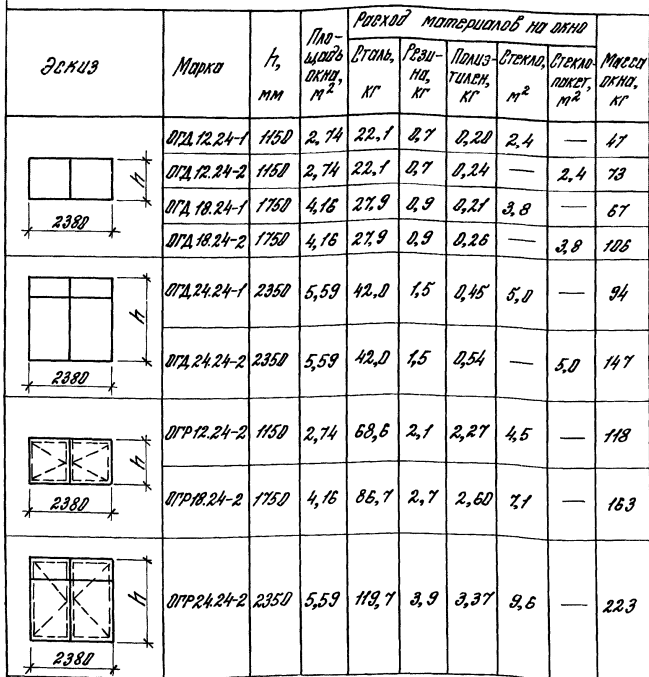 Эскиз | Марка | h, мм | Площадь окна, м² | Расход материалов на окно | Масса окна, кг
Сталь, кг | Резина, кг | Полиэтилен, кг | Стекло, м² | Стеклопакет, м²
ОГД 12.24-1 | 1150 | 2,74 | 22,1 | 0,7 | 0,20 | 2,4 | — | 47
ОГД 12.24-2 | 1150 | 2,74 | 22,1 | 0,7 | 0,24 | — | 2,4 | 73
h
ОГД 18.24-1 | 1750 | 4,16 | 27,9 | 0,9 | 0,21 | 3,8 | — | 67
2380
ОГД 18.24-2 | 1750 | 4,16 | 27,9 | 0,9 | 0,26 | — | 3,8 | 106
ОГД 24.24-1 | 2350 | 5,59 | 42,0 | 1,5 | 0,45 | 5,0 | — | 94
h
ОГД 24.24-2 | 2350 | 5,59 | 42,0 | 1,5 | 0,54 | — | 5,0 | 147
2380
ОГР 12.24-2 | 1150 | 2,74 | 68,6 | 2,1 | 2,27 | 4,5 | — | 118
h
2380
ОГР 18.24-2 | 1750 | 4,16 | 86,7 | 2,7 | 2,60 | 7,1 | — | 163
h
ОГР 24.24-2 | 2350 | 5,59 | 119,7 | 3,9 | 3,37 | 9,6 | — | 223
2380